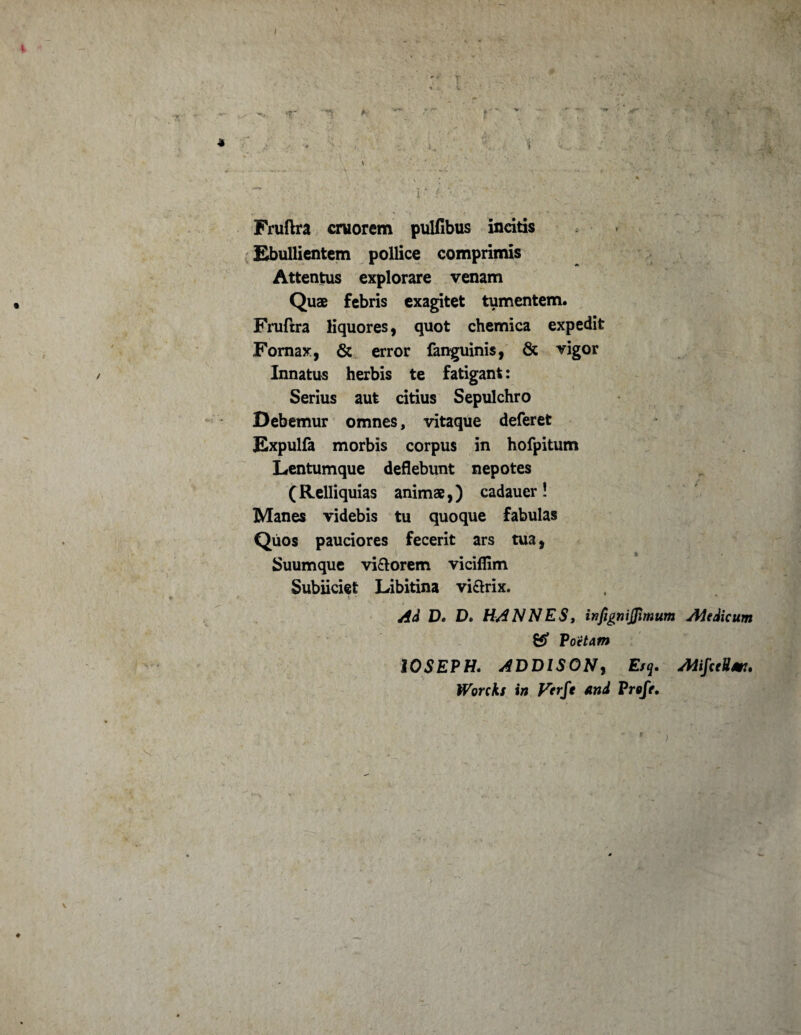 Fruſtra cruorem pulſibus incitis
Ebullientem pollice comprimis
Attentus explorare venam
Quæ febris exagitet tumentem.
Fruſtra liquores, quot chemica expedit
Fornax, & error ſanguinis, & vigor
Innatus herbis te fatigant:
Serius aut citius Sepulchro
Debemur omnes, vitaque deferet
Expulſa morbis corpus in hoſpitum
Lentumque deflebunt nepotes
(Relliquias animæ,) cadauer!
Manes videbis tu quoque fabulas
Quos pauciores fecerit ars tua,
Suumque victorem viciſſim
Subiiciet Libitina victrix.
Ad D. D. HANNES, inſigniſſimum Medicum
& Poëtam
IOSEPH. ADDISON, Esq. Miſcellan.
Worcks in Verſe and Proſe.